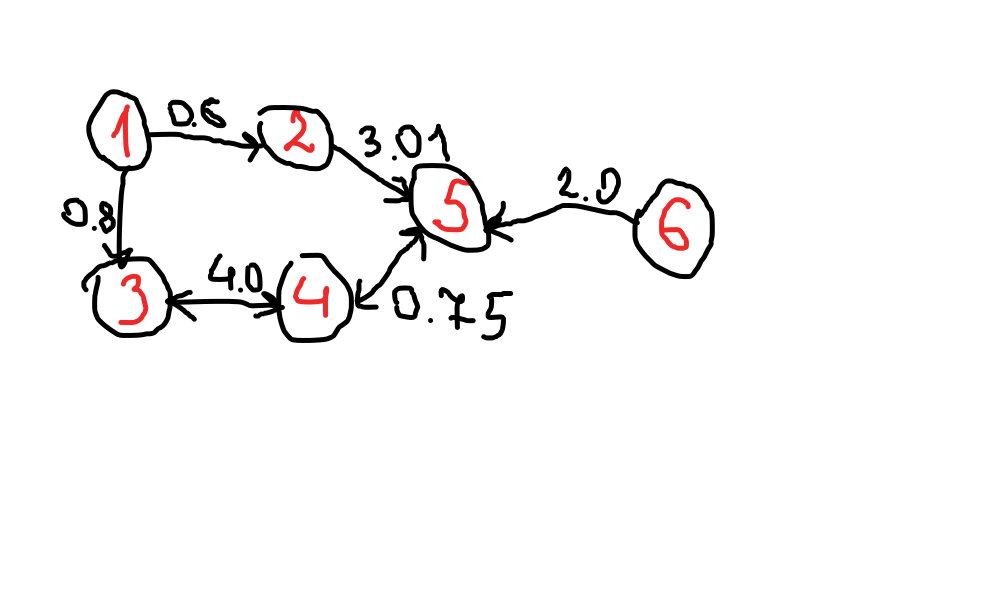 1 0.6 2 3.01
0.8 5 2.0 6
3 4.0 4 0.75